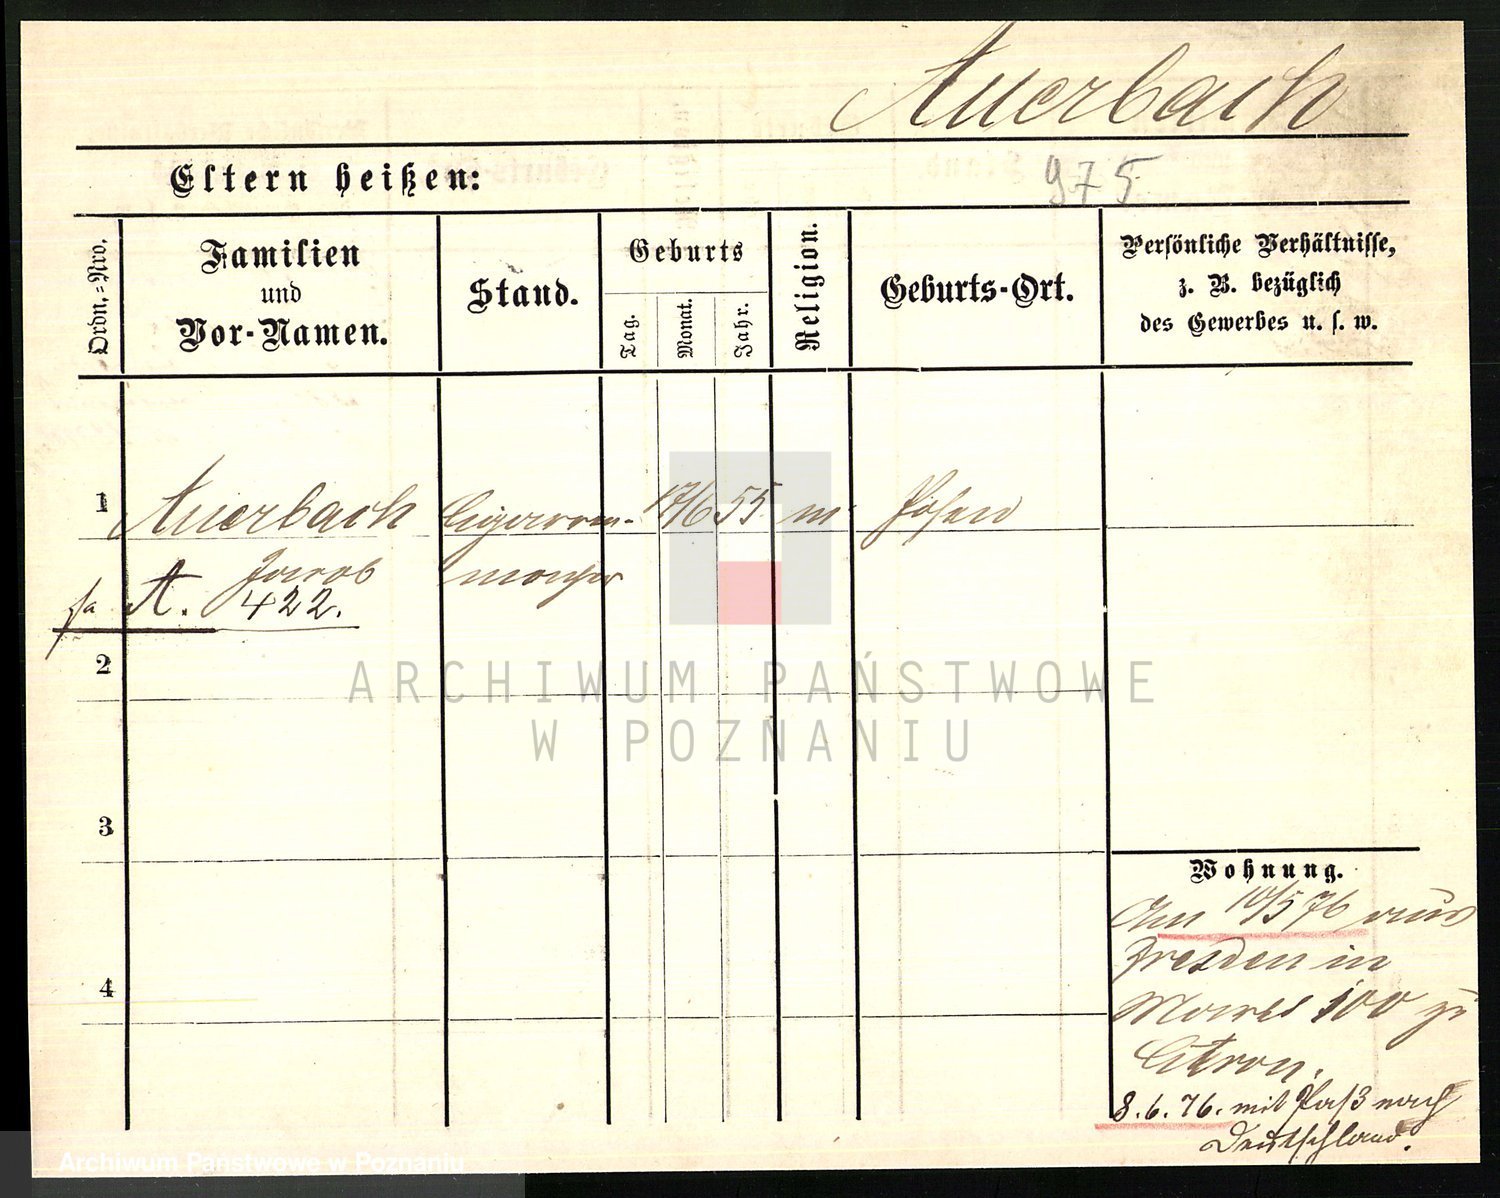 Auerbach
Eltern heißen:
975
Ordn.=Nro.
Familien
und
Vor-Namen.
Stand.
Geburts
Tag.
Monat.
Jahr.
Religion.
Geburts-Ort.
Persönliche Verhältnisse,
z. B. bezüglich
des Gewerbes u. s. w.
1 Auerbach Cigarren- 17/6 55 m. Posen
Jacob macher
A. 422.
2
ARCHIWUM PAŃSTWOWE
W POZNANIU
3
Wohnung.
Am 10/5 76 aus
Dresden in
4
100 zu
Citron.
8.6.76. mit Paß nach
Deutschland.
Archiwum Państwowe w Poznaniu